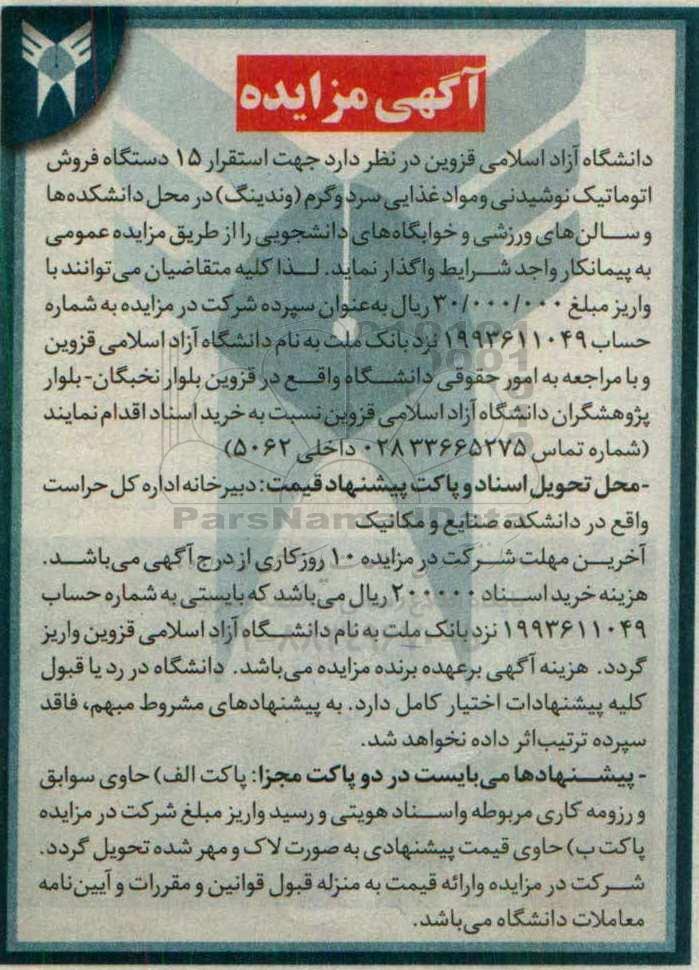 آگهی مزایده
دانشگاه آزاد اسلامی قزوین در نظر دارد جهت استقرار ۱۵ دستگاه فروش
اتوماتیک نوشیدنی ومواد غذایی سرد وگرم (وندینگ) در محل دانشکده‌ها
و سالن‌های ورزشی و خوابگاه‌های دانشجویی را از طریق مزایده عمومی
به پیمانکار واجد شرایط واگذار نماید. لذا کلیه متقاضیان می‌توانند با
واریز مبلغ ۳۰/۰۰۰/۰۰۰ ریال به‌عنوان سپرده شرکت در مزایده به شماره
حساب ۱۹۹۳۶۱۱۰۴۹ نزد بانک ملت به نام دانشگاه آزاد اسلامی قزوین
و با مراجعه به امور حقوقی دانشگاه واقع در قزوین بلوار نخبگان- بلوار
پژوهشگران دانشگاه آزاد اسلامی قزوین نسبت به خرید اسناد اقدام نمایند
(شماره تماس ۰۲۸۳۳۶۶۵۲۷۵ داخلی ۵۰۶۲)
-محل تحویل اسناد و پاکت پیشنهاد قیمت: دبیرخانه اداره کل حراست
واقع در دانشکده صنایع و مکانیک
ParsNamadData
آخرین مهلت شرکت در مزایده ۱۰ روزکاری از درج آگهی می‌باشد.
هزینه خرید اسناد ۲۰۰۰۰۰ ریال می‌باشد که بایستی به شماره حساب
۱۹۹۳۶۱۱۰۴۹ نزد بانک ملت به نام دانشگاه آزاد اسلامی قزوین واریز
گردد. هزینه آگهی برعهده برنده مزایده می‌باشد. دانشگاه در رد یا قبول
کلیه پیشنهادات اختیار کامل دارد. به پیشنهادهای مشروط مبهم، فاقد
سپرده ترتیب‌اثر داده نخواهد شد.
- پیشنهادها می‌بایست در دو پاکت مجزا: پاکت الف) حاوی سوابق
و رزومه کاری مربوطه واسناد هویتی و رسید واریز مبلغ شرکت در مزایده
پاکت ب) حاوی قیمت پیشنهادی به صورت لاک و مهر شده تحویل گردد.
شرکت در مزایده وارائه قیمت به منزله قبول قوانین و مقررات و آیین‌نامه
معاملات دانشگاه می‌باشد.